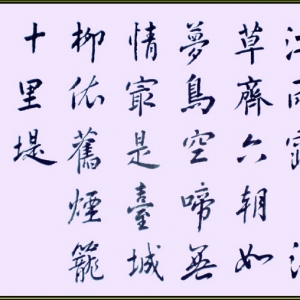 江雨霏江
草齊六朝如
夢鳥空啼無
情最是臺城
柳依舊煙籠
十里堤